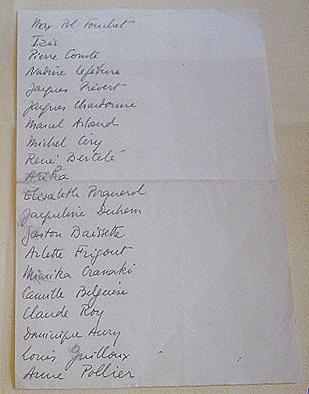 Max-Pol Fouchet
Izis
Pierre Comte
Nadine Lefébure
Jacques Prévert
Jacques Chardonne
Marcel Arland
Michel Ciry
René Bertelé
Arika
Elisabeth
Jacqueline Duhem
Gaston Baissette
Arlette Frigout
Mimika Cranaki
Camille
Claude Roy
Dominique Aury
Louis Guilloux
Anne Pollier